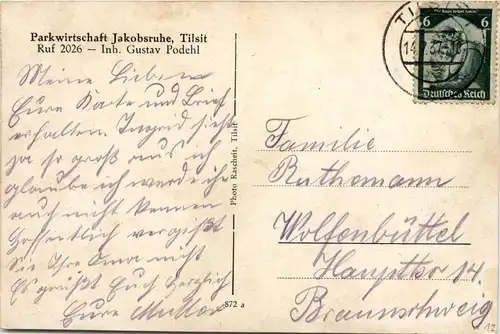 Parkwirtschaft Jakobsruhe, Tilsit
Ruf 2026 – Inh. Gustav Podehl
Meine Lieben
Eure Karte und Brief
erhalten. Ingrid sieht
ja so groß aus ich
glaube ich werde ihr
auch nicht kennen
Hoffentlich vergißt
Sie Ihre Oma nicht
Es grüßt Euch herzlich
Eure Mutter
Photo Rascheit, Tilsit
872 a
6 6
Deutsches Reich
Familie
Ruthemann
Wolfenbüttel
Haupttor 14.
Braunschweig